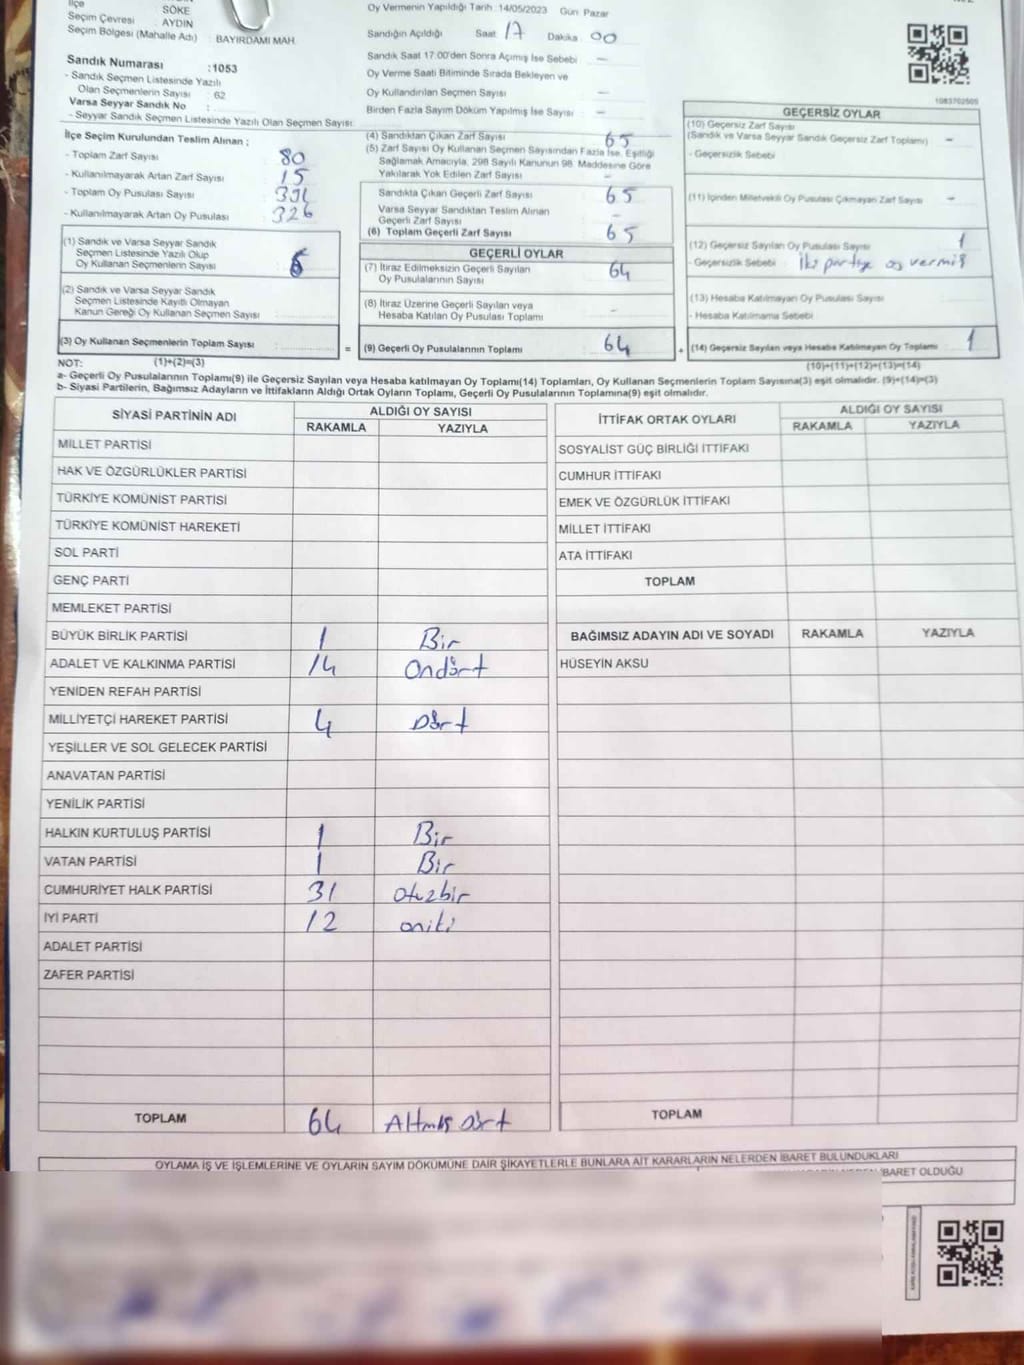 İlçe : SÖKE
Seçim Çevresi : AYDIN
Seçim Bölgesi (Mahalle Adı) : BAYIRDAMI MAH.
Sandık Numarası :1053
- Sandık Seçmen Listesinde Yazılı
Olan Seçmenlerin Sayısı : 62
Varsa Seyyar Sandık No :
- Seyyar Sandık Seçmen Listesinde Yazılı Olan Seçmen Sayısı:
İlçe Seçim Kurulundan Teslim Alınan ;
- Toplam Zarf Sayısı 80
- Kullanılmayarak Artan Zarf Sayısı 15
- Toplam Oy Pusulası Sayısı 391
- Kullanılmayarak Artan Oy Pusulası 326
(1) Sandık ve Varsa Seyyar Sandık
Seçmen Listesinde Yazılı Olup
Oy Kullanan Seçmenlerin Sayısı
(2) Sandık ve Varsa Seyyar Sandık
Seçmen Listesinde Kayıtlı Olmayan
Kanun Gereği Oy Kullanan Seçmen Sayısı
(3) Oy Kullanan Seçmenlerin Toplam Sayısı =
Oy Vermenin Yapıldığı Tarih :14/05/2023 Gün Pazar
Sandığın Açıldığı Saat 17 Dakika 00
Sandık Saat 17:00'den Sonra Açılmış İse Sebebi —
Oy Verme Saati Bitiminde Sırada Bekleyen ve
Oy Kullandırılan Seçmen Sayısı —
Birden Fazla Sayım Döküm Yapılmış İse Sayısı —
(4) Sandıktan Çıkan Zarf Sayısı 65
(5) Zarf Sayısı Oy Kullanan Seçmen Sayısından Fazla İse, Eşitliği
Sağlamak Amacıyla, 298 Sayılı Kanunun 98. Maddesine Göre
Yakılarak Yok Edilen Zarf Sayısı -
Sandıkta Çıkan Geçerli Zarf Sayısı 65
Varsa Seyyar Sandıktan Teslim Alınan
Geçerli Zarf Sayısı -
(6) Toplam Geçerli Zarf Sayısı 65
GEÇERLİ OYLAR
(7) İtiraz Edilmeksizin Geçerli Sayılan
Oy Pusulalarının Sayısı 64
(8) İtiraz Üzerine Geçerli Sayılan veya
Hesaba Katılan Oy Pusulası Toplamı -
(9) Geçerli Oy Pusulalarının Toplamı 64 +
1083702505
GEÇERSİZ OYLAR
(10) Geçersiz Zarf Sayısı
(Sandık ve Varsa Seyyar Sandık Geçersiz Zarf Toplamı) -
- Geçersizlik Sebebi
(11) İçinden Milletvekili Oy Pusulası Çıkmayan Zarf Sayısı -
(12) Geçersiz Sayılan Oy Pusulası Sayısı 1
- Geçersizlik Sebebi İki partiye oy vermiş
(13) Hesaba Katılmayan Oy Pusulası Sayısı
- Hesaba Katılmama Sebebi
(14) Geçersiz Sayılan veya Hesaba Katılmayan Oy Toplamı 1
NOT: (1)+(2)=(3) (10)+(11)+(12)+(13)=(14)
a- Geçerli Oy Pusulalarının Toplamı(9) ile Geçersiz Sayılan veya Hesaba katılmayan Oy Toplamı(14) Toplamları, Oy Kullanan Seçmenlerin Toplam Sayısına(3) eşit olmalıdır. (9)+(14)=(3)
b- Siyasi Partilerin, Bağımsız Adayların ve İttifakların Aldığı Ortak Oyların Toplamı, Geçerli Oy Pusulalarının Toplamına(9) eşit olmalıdır.
SİYASİ PARTİNİN ADI ALDIĞI OY SAYISI
RAKAMLA YAZIYLA
MİLLET PARTİSİ
HAK VE ÖZGÜRLÜKLER PARTİSİ
TÜRKİYE KOMÜNİST PARTİSİ
TÜRKİYE KOMÜNİST HAREKETİ
SOL PARTİ
GENÇ PARTİ
MEMLEKET PARTİSİ
BÜYÜK BİRLİK PARTİSİ 1 Bir
ADALET VE KALKINMA PARTİSİ 14 Ondört
YENİDEN REFAH PARTİSİ
MİLLİYETÇİ HAREKET PARTİSİ 4 Dört
YEŞİLLER VE SOL GELECEK PARTİSİ
ANAVATAN PARTİSİ
YENİLİK PARTİSİ
HALKIN KURTULUŞ PARTİSİ 1 Bir
VATAN PARTİSİ 1 Bir
CUMHURİYET HALK PARTİSİ 31 otuzbir
İYİ PARTİ 12 oniki
ADALET PARTİSİ
ZAFER PARTİSİ
TOPLAM 64 Altmış dört
İTTİFAK ORTAK OYLARI ALDIĞI OY SAYISI
RAKAMLA YAZIYLA
SOSYALİST GÜÇ BİRLİĞİ İTTİFAKI
CUMHUR İTTİFAKI
EMEK VE ÖZGÜRLÜK İTTİFAKI
MİLLET İTTİFAKI
ATA İTTİFAKI
TOPLAM
BAĞIMSIZ ADAYIN ADI VE SOYADI RAKAMLA YAZIYLA
HÜSEYİN AKSU
TOPLAM
OYLAMA İŞ VE İŞLEMLERİNE VE OYLARIN SAYIM DÖKÜMÜNE DAİR ŞİKAYETLERLE BUNLARA AİT KARARLARIN NELERDEN İBARET BULUNDUKLARI
İBARET OLDUĞU